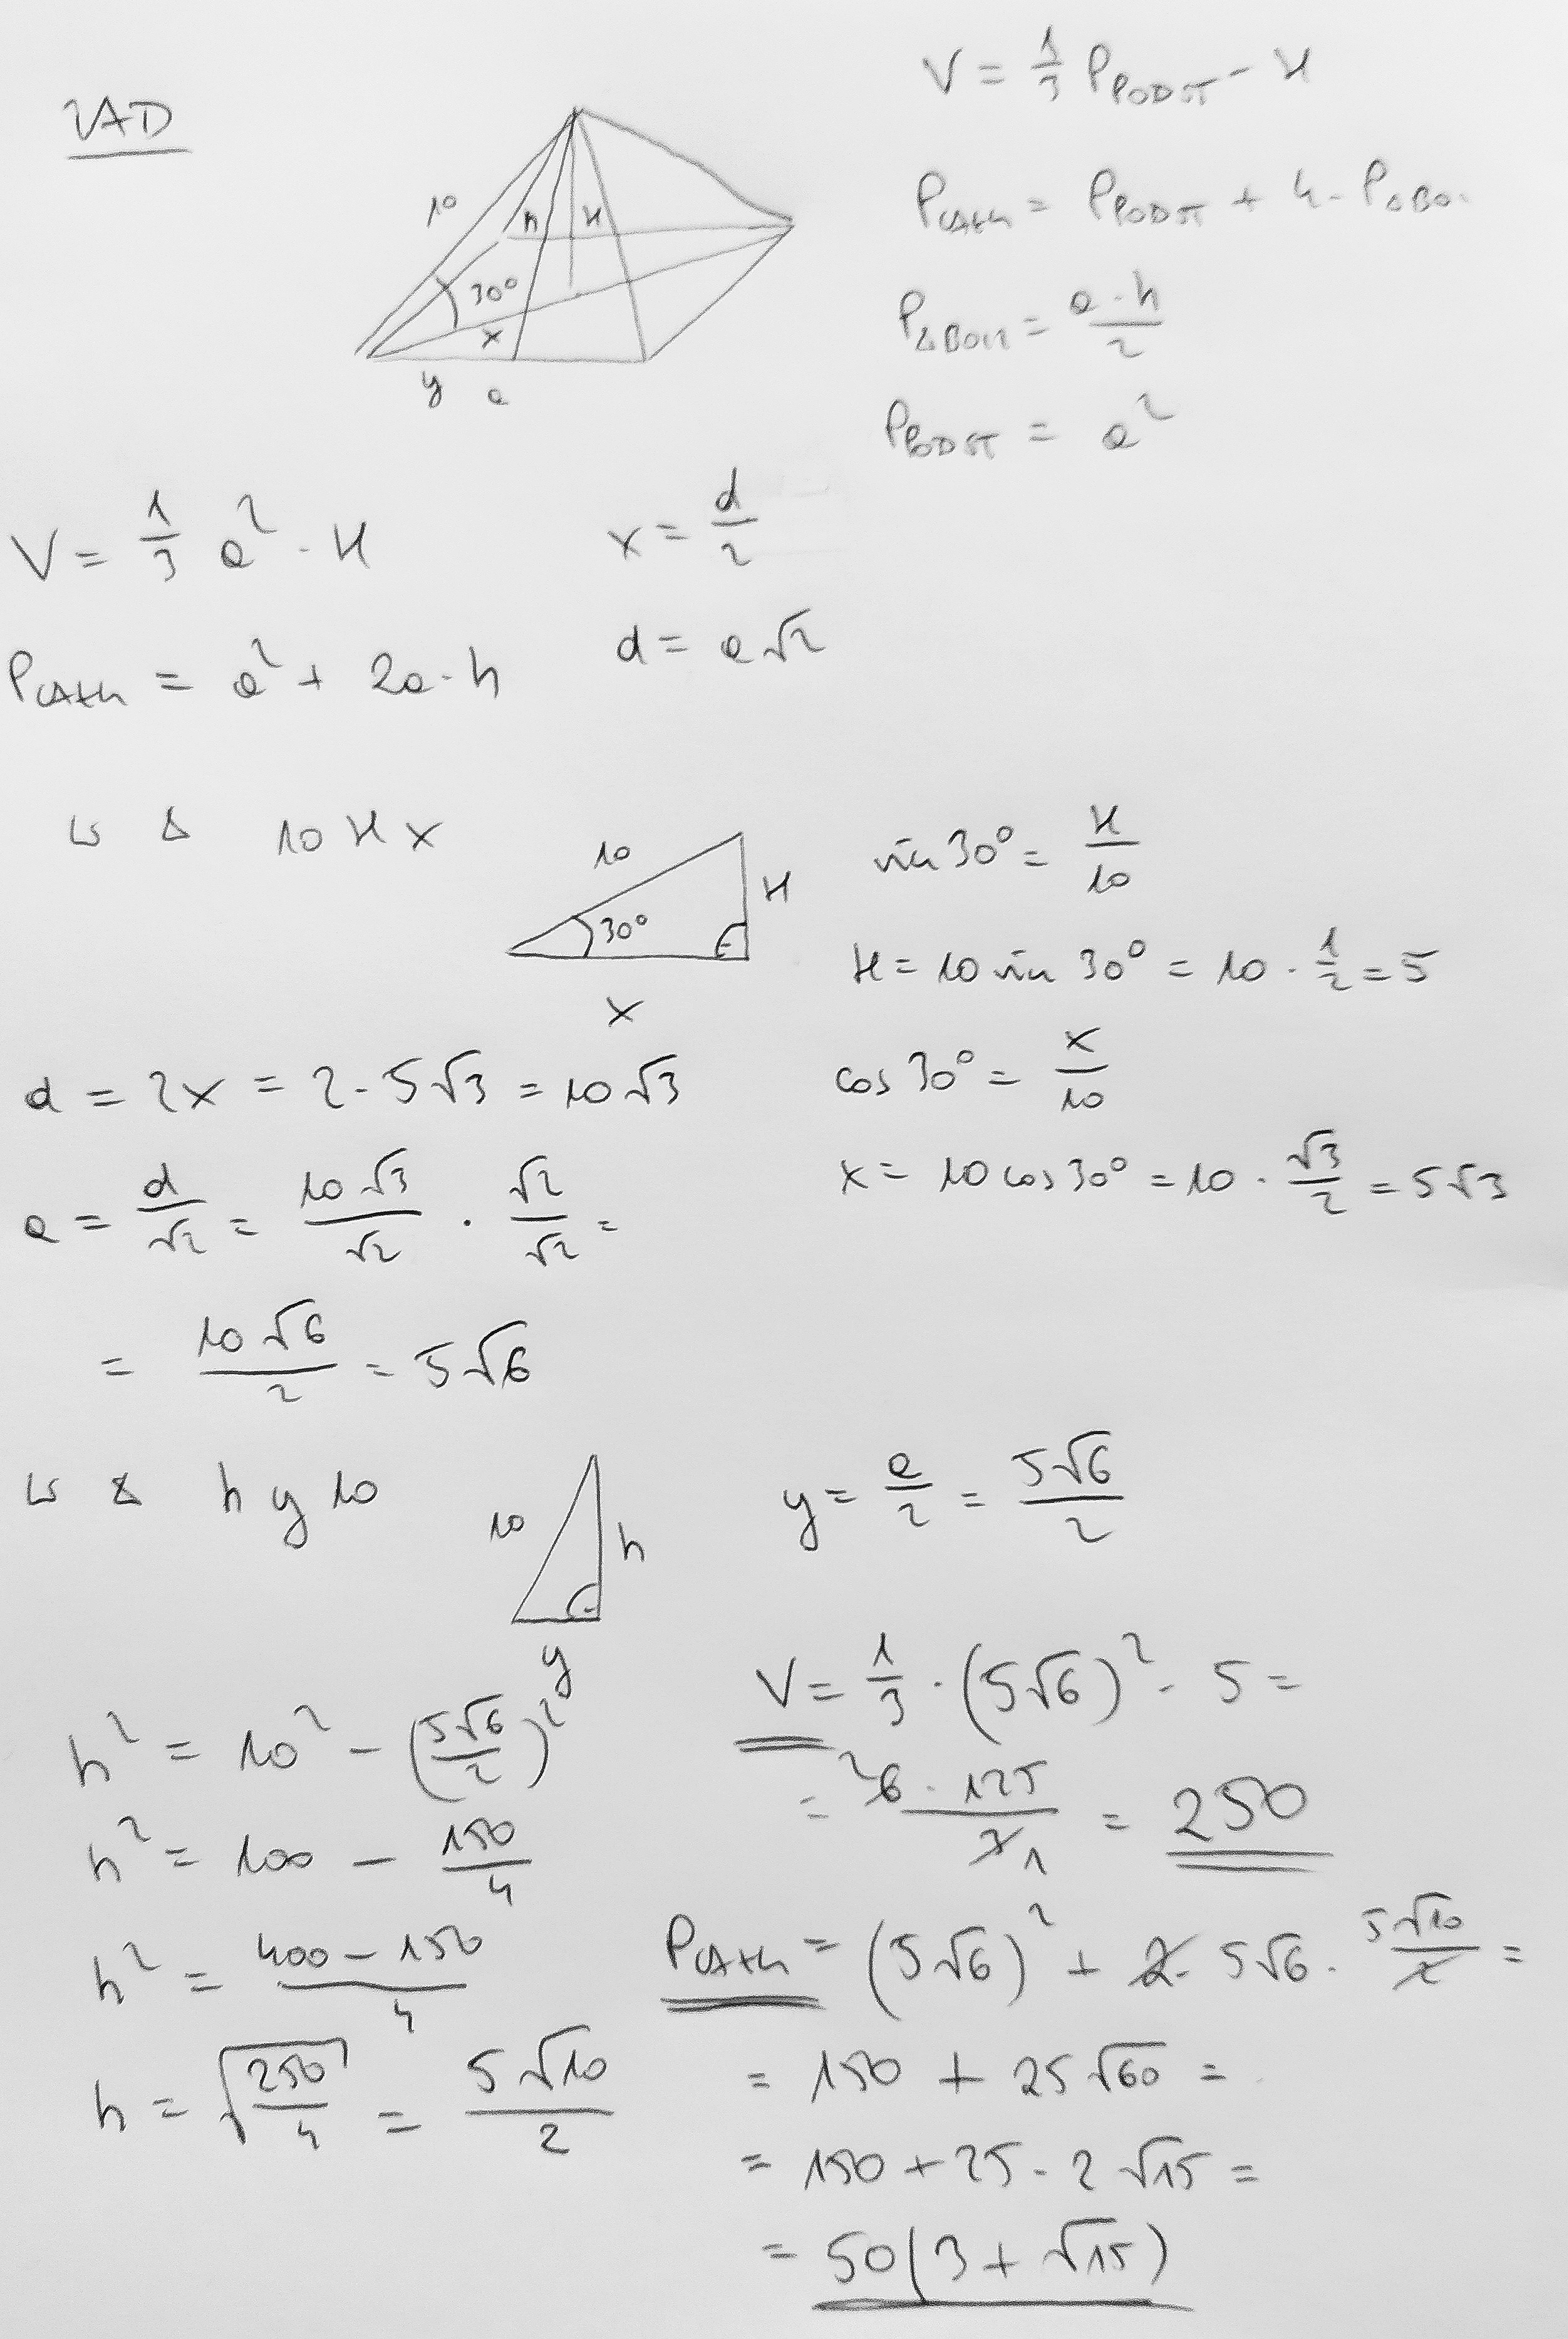 ZAD
V = 1/3 P_PODST · H
10
h
H
30°
x
y
a
P_CAŁK = P_PODST + 4 · P_ΔBO
P_ΔBOCZ = a·h/2
P_PODST = a²
V = 1/3 a² · H
x = d/2
P_CAŁK = a² + 2a·h
d = a√2
W Δ 10 H x
10
H
30°
x
sin 30° = H/10
H = 10 sin 30° = 10 · 1/2 = 5
cos 30° = x/10
x = 10 cos 30° = 10 · √3/2 = 5√3
d = 2x = 2 · 5√3 = 10√3
a = d/√2 = 10√3/√2 · √2/√2 =
= 10√6/2 = 5√6
W Δ h y 10
10
h
y
y = a/2 = 5√6/2
h² = 10² - (5√6/2)²
h² = 100 - 150/4
h² = 400 - 150/4
h = √250/4 = 5√10/2
V = 1/3 · (5√6)² · 5 =
= ²6 · 125/3 1 = 250
P_CAŁK = (5√6)² + 2 · 5√6 · 5√10/2 =
= 150 + 25√60 =
= 150 + 25 · 2√15 =
= 50(3 + √15)